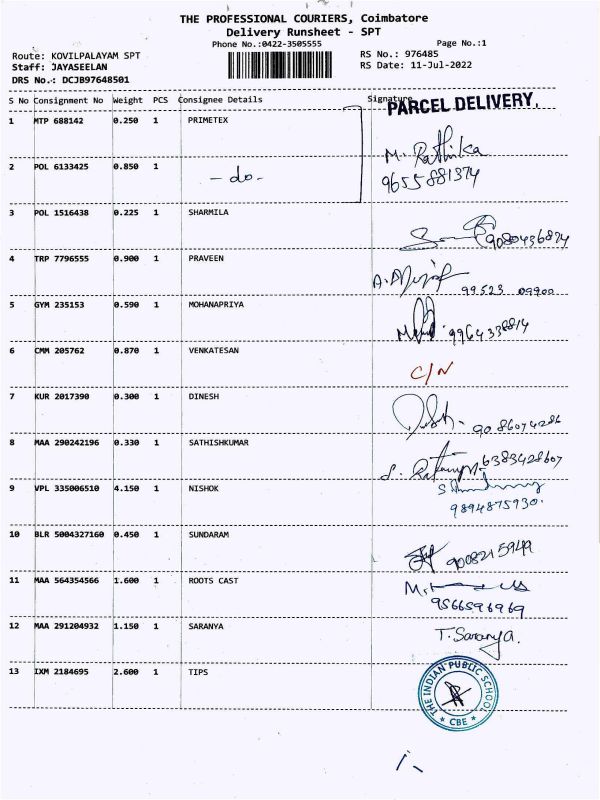 THE PROFESSIONAL COURIERS, Coimbatore
Delivery Runsheet - SPT
Phone No.:0422-3505555 Page No.:1
Route: KOVILPALAYAM SPT RS No.: 976485
Staff: JAYASEELAN RS Date: 11-Jul-2022
DRS No.: DCJB97648501
S No Consignment No Weight PCS Consignee Details Signature
PARCEL DELIVERY.
1 MTP 688142 0.250 1 PRIMETEX
M. Rathika
2 POL 6133425 0.850 1 - do - 9655881374
3 POL 1516438 0.225 1 SHARMILA
9080436874
4 TRP 7796555 0.900 1 PRAVEEN
99523 09900
5 GYM 235153 0.590 1 MOHANAPRIYA
9964338814
6 CMM 205762 0.870 1 VENKATESAN
C/N
7 KUR 2017390 0.300 1 DINESH
9086074286
8 MAA 290242196 0.330 1 SATHISHKUMAR
6383428607
9 VPL 335006510 4.150 1 NISHOK
9894875930.
10 BLR 5004327160 0.450 1 SUNDARAM
9008215949
11 MAA 564354566 1.600 1 ROOTS CAST
9566596969
12 MAA 291204932 1.150 1 SARANYA T. Saranya.
13 IXM 2184695 2.600 1 TIPS
THE INDIAN PUBLIC SCHOOL
* CBE *